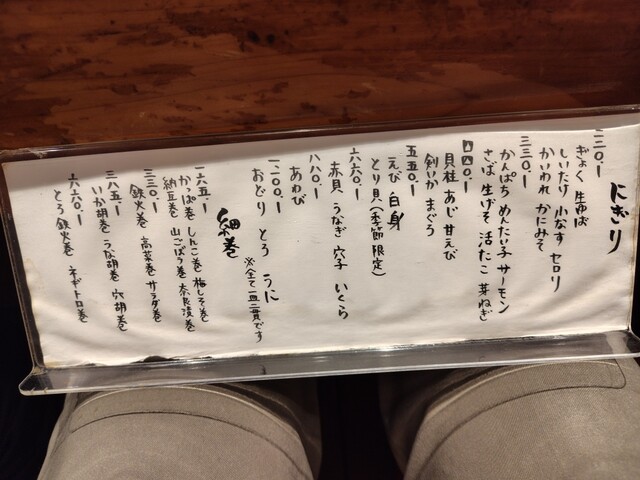 にぎり
二二〇.ー
ぎょく 生ゆば
しいたけ 小なす セロリ
かいわれ かにみそ
三三〇.ー
かんぱち めんたい子 サーモン
さば 生げそ 活たこ 芽ねぎ
四四〇.ー
貝柱 あじ 甘えび
剣いか まぐろ
五五〇.ー
えび 白身
とり貝(季節限定)
六六〇.ー
赤貝 うなぎ 穴子 いくら
八八〇.ー
あわび
一一〇〇ー
おどり とろ うに
※全て一皿二貫です
細巻
一六五.ー
かっぱ巻 しんこ巻 梅しそ巻
納豆巻 山ごぼう巻 奈良漬巻
三三〇.ー
鉄火巻 高菜巻 サラダ巻
三八五.ー
いか胡巻 うな胡巻 穴胡巻
六六〇.ー
とろ鉄火巻 ネギトロ巻